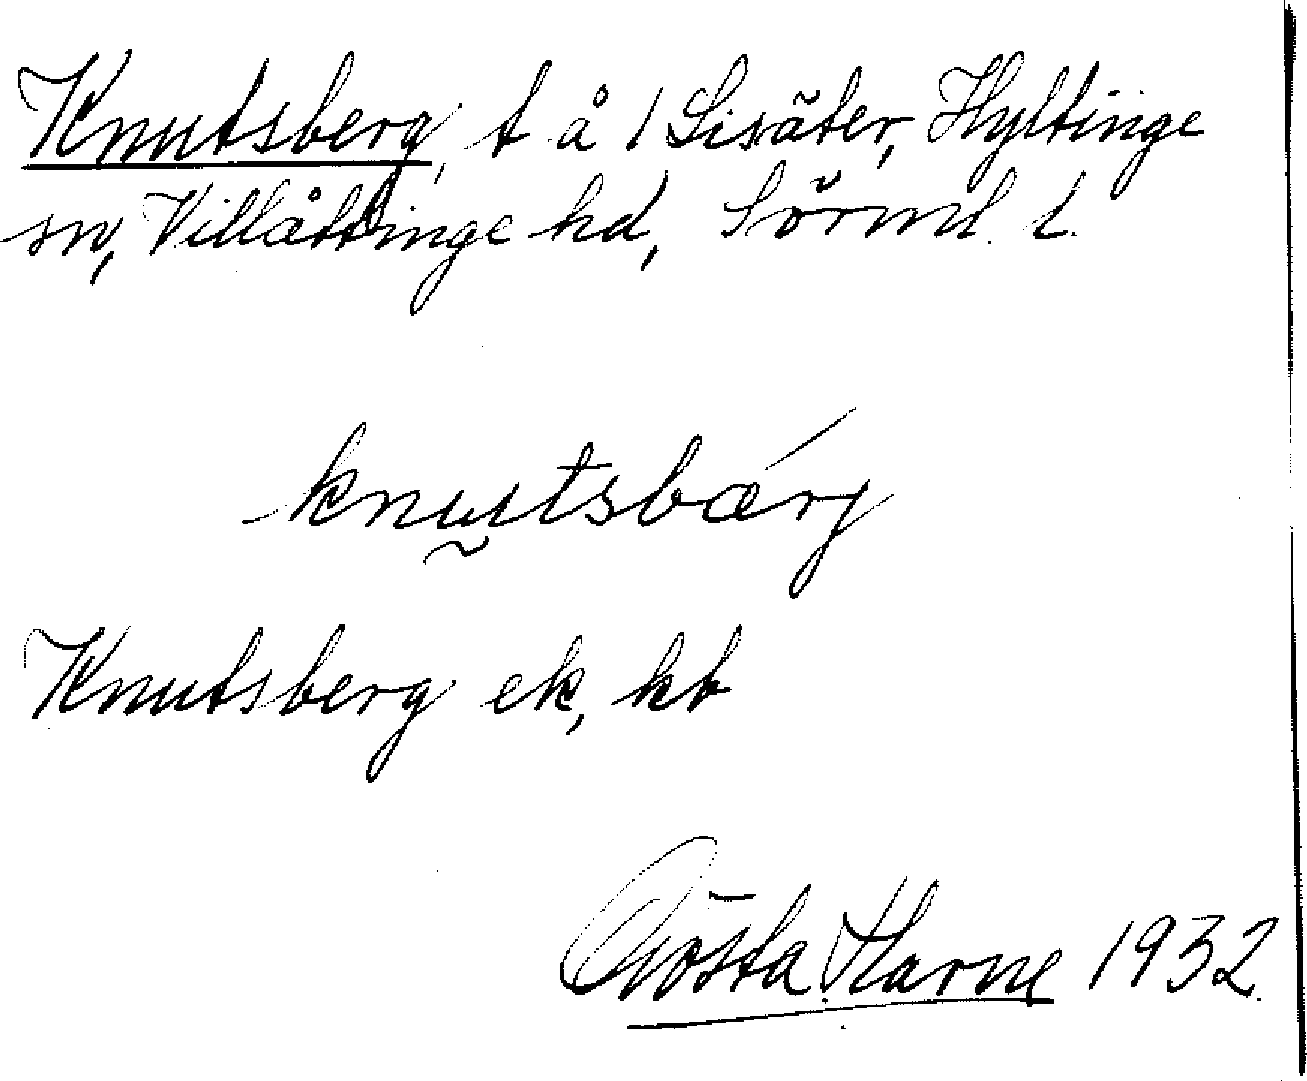 Knutsberg, t å 1 Lisäter, Hyltinge
sn, Villåttinge hd, Sörml. l.
knutsbærj
Knutsberg ek, kb
Gösta Harne 1932.